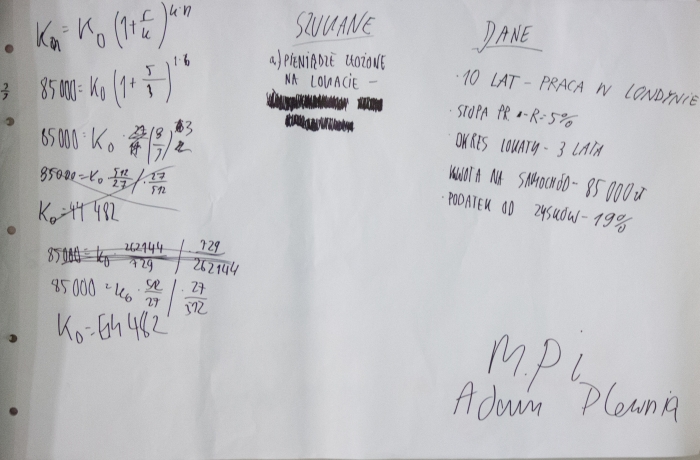 Kn = K0 (1 + r/k)^k·n
85 000 = K0 (1 + 5/3)^1·6
85 000 = K0 · (8/3)^3
85 000 = K0 512/27 / · 27/512
K0 = 44 482
85 000 = K0 262144/729 / · 729/262144
85 000 = K0 · 512/27 / · 27/512
K0 = 44 482
SZUKANE
a) PIENIĄDZE ZŁOŻONE
NA LOKACIE –
DANE
· 10 LAT – PRACA W LONDYNIE
· STOPA PR – R = 5%
OKRES LOKATY – 3 LATA
KWOTA NA SAMOCHÓD – 85 000 zł
· PODATEK OD ZYSKÓW – 19%
M. Pi
Adam Plewnia
2/3